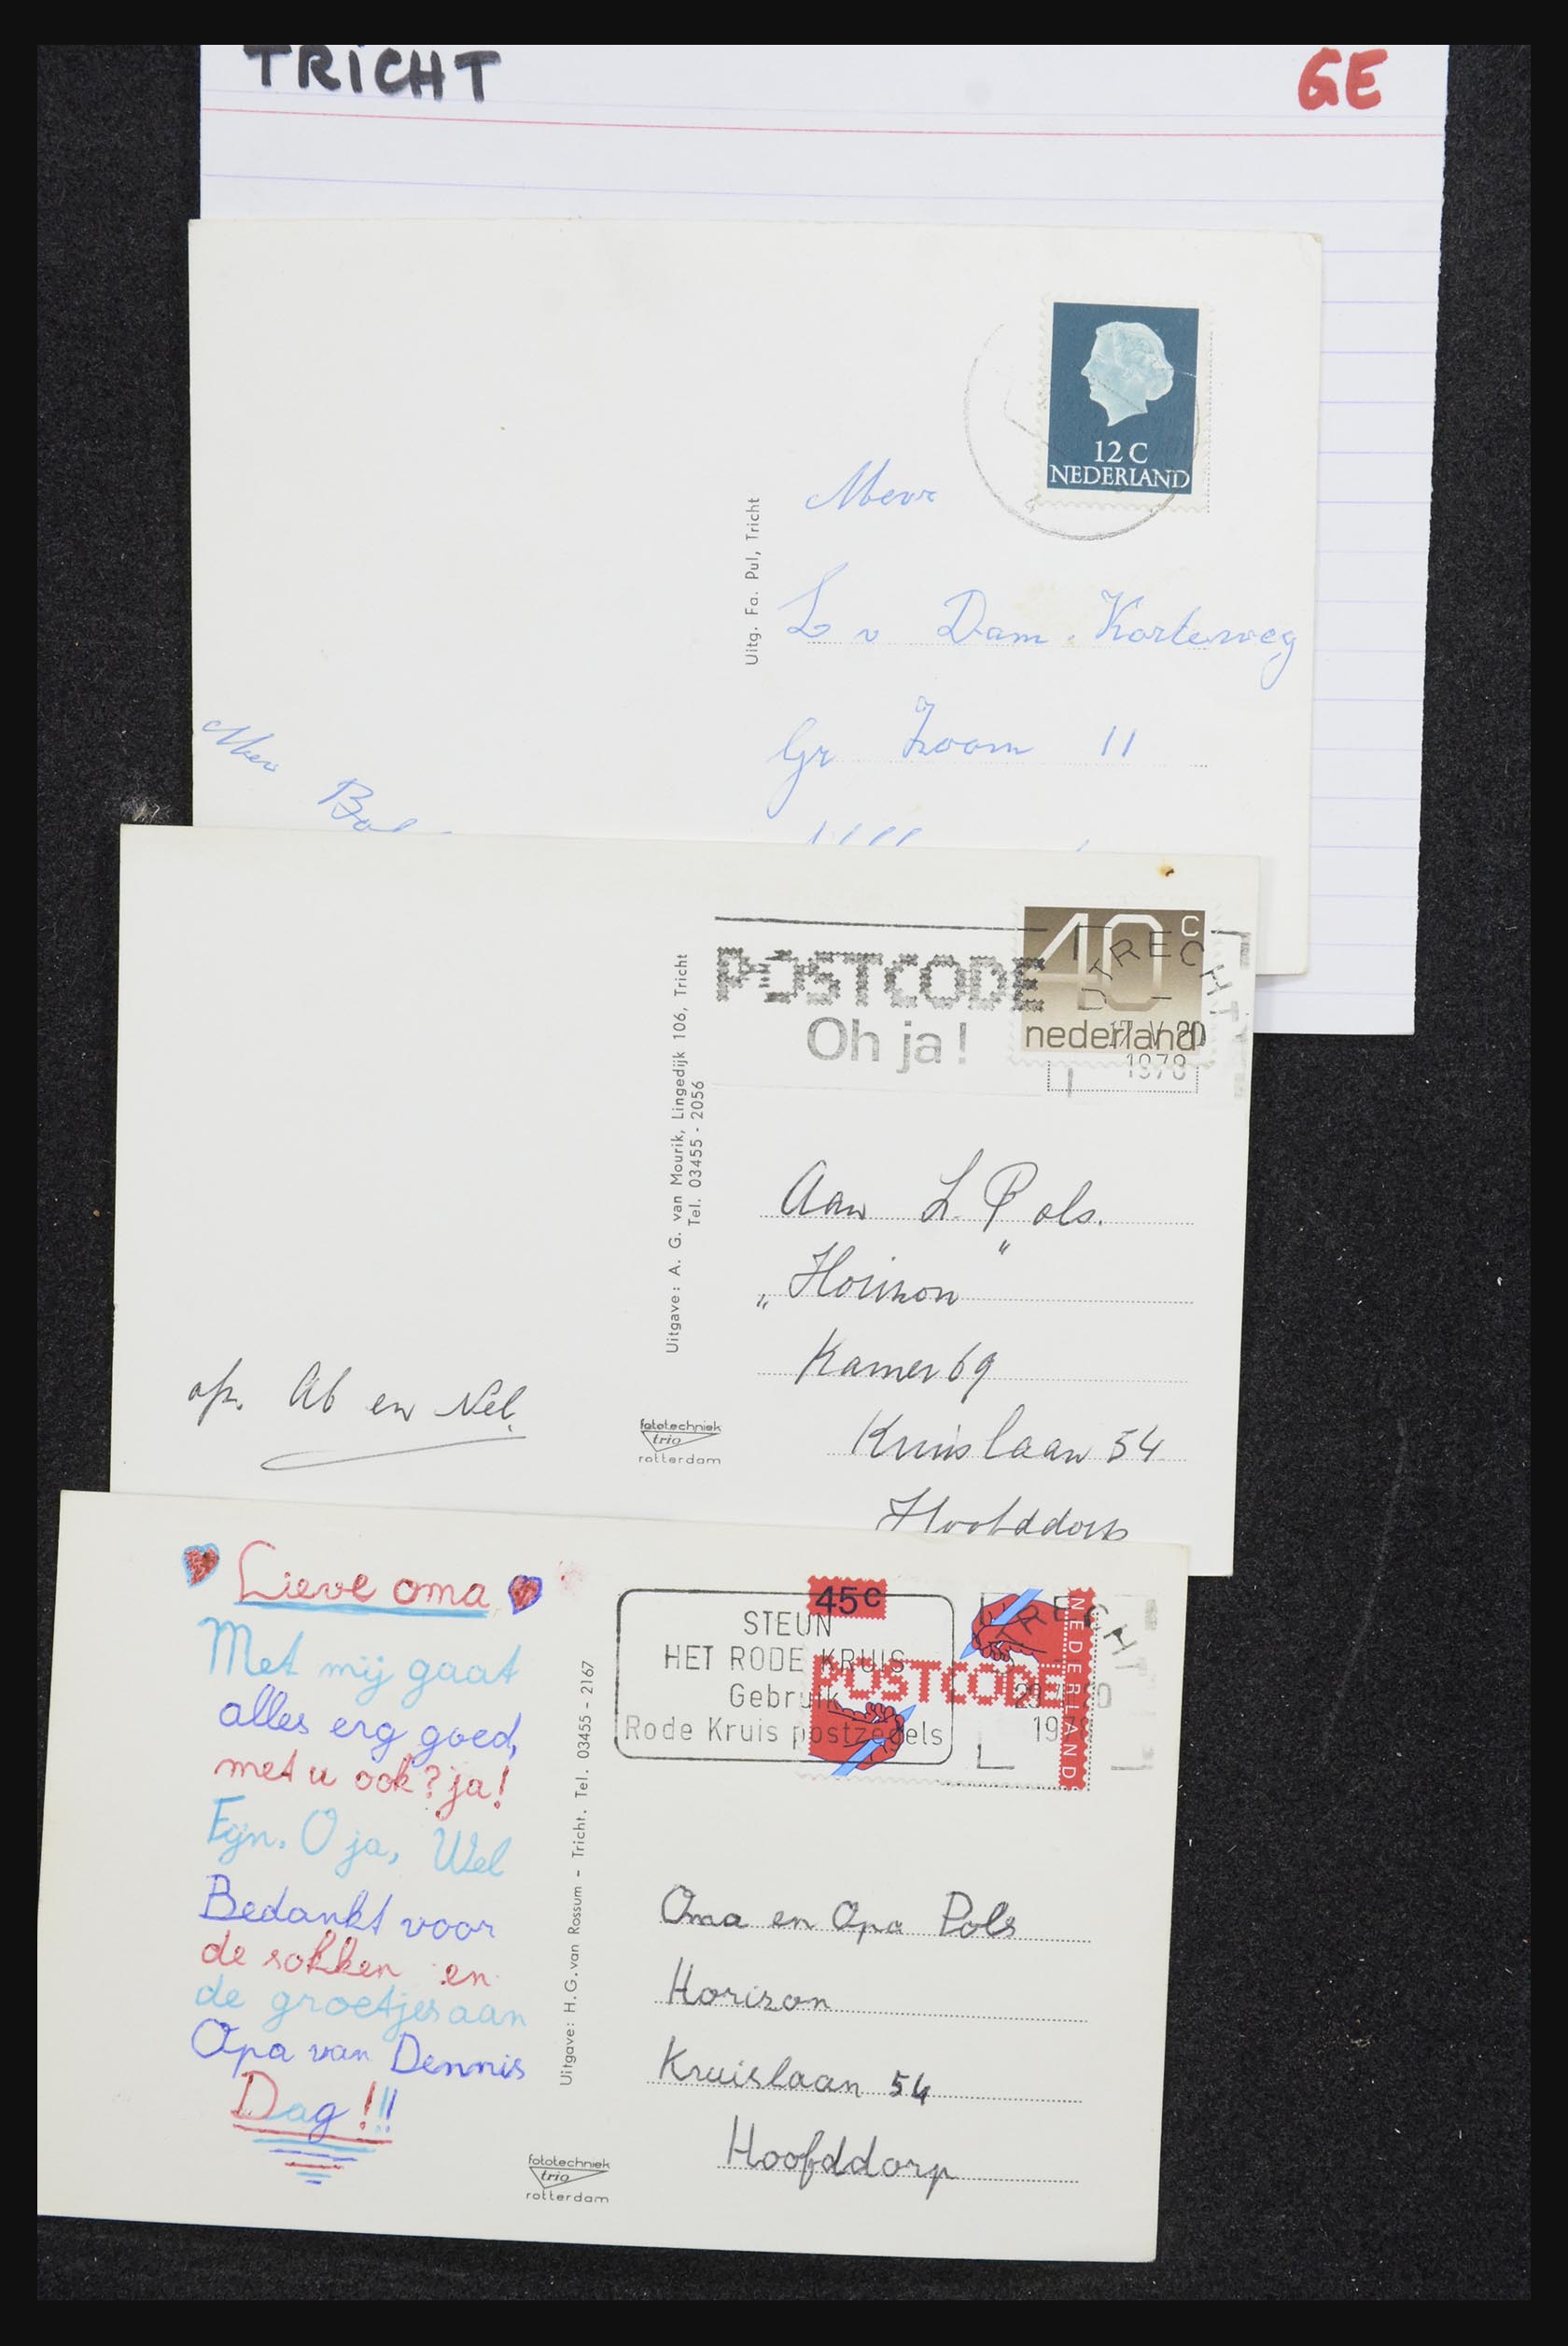 TRICHT
GE
12 C
NEDERLAND
Mevr
Uitg. Fa. Pul, Tricht
L v Dam-Korteweg
Gr Zoom 11
Mev
POSTCODE
Oh ja!
40 c
nederland
UTRECHT
17 V 20
1978
Uitgave: A. G. van Mourik, Lingedijk 106, Tricht
Tel. 03455 - 2056
Aan L. Pols.
„Horizon"
Kamer 69
Kruislaan 54
Hoofddorp
afz. Ab en Nel.
fototechniek
trio
rotterdam
Lieve oma
Met mij gaat
alles erg goed,
met u ook? ja!
Fijn. O ja, Wel
Bedankt voor
de sokken en
de groetjes aan
Opa van Dennis
Dag!!!
STEUN
HET RODE KRUIS
Gebruik
Rode Kruis postzegels
45 c
POSTCODE
NEDERLAND
UTRECHT
1978
Uitgave: H.G.van Rossum - Tricht. Tel. 03455 - 2167
Oma en Opa Pols
Horizon
Kruislaan 54
Hoofddorp
fototechniek
trio
rotterdam